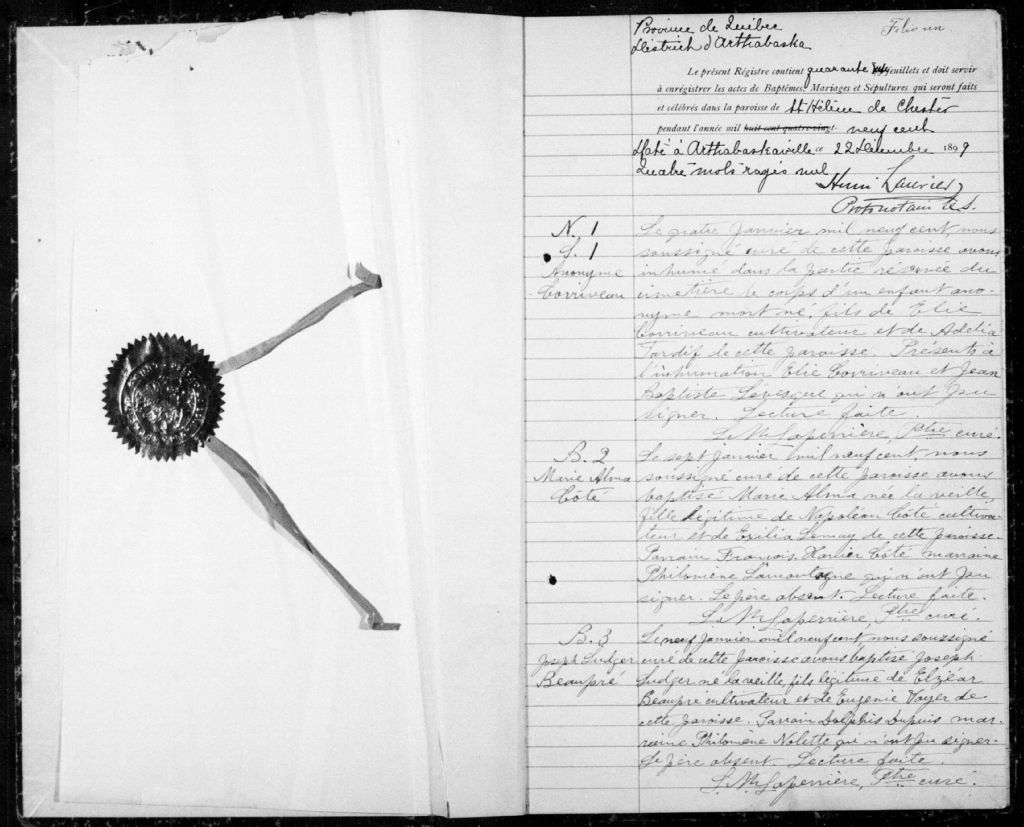 Province de Québec
District d'Arthabaska
Folio un
Le présent Régistre contient quarante feuillets et doit servir
à enrégistrer les actes de Baptêmes, Mariages et Sépultures qui seront faits
et célébrés dans la paroisse de St Hélène de Chester
pendant l'année mil huit cent quatre-vingt neuf cent
Daté à Arthabaskaville ce 22 Décembre 1899
Quatre mots rayés nul
Henri Laurier
Protonotaire C.S.
N. 1
S. 1
Anonyme
Corriveau
Le quatre Janvier mil neuf cent, nous
soussigné curé de cette paroisse avons
inhumé dans la partie réservée du
cimetière le corps d'un enfant ano-
nyme mort né, fils de Elie
Corriveau cultivateur et de Adélia
Tardif de cette paroisse. Présents à
l'inhumation Elie Corriveau et Jean
Baptiste Levesque qui n'ont pu
signer. Lecture faite.
L. M. Laperrière, Ptre curé.
B. 2
Marie Alma
Côté
Le sept Janvier mil neuf cent, nous
soussigné curé de cette paroisse avons
baptisé Marie Alma née la veille,
fille légitime de Napoléon Côté cultiva-
teur et de Exilia Lemay de cette paroisse.
Parrain François Xavier Côté marraine
Philomène Lamontagne qui n'ont pu
signer. Le père absent. Lecture faite.
L. M. Laperrière, Ptre curé.
B. 3
Joseph Ludger
Beaupré
Le neuf Janvier mil neuf cent, nous soussigné
curé de cette paroisse avons baptisé Joseph
Ludger né la veille, fils légitime de Elzéar
Beaupré cultivateur et de Eugenie Voyer de
cette paroisse. Parrain Dolphis Dupuis mar-
raine Philomène Nolette qui n'ont pu signer.
Le père absent. Lecture faite.
L. M. Laperrière, Ptre curé.